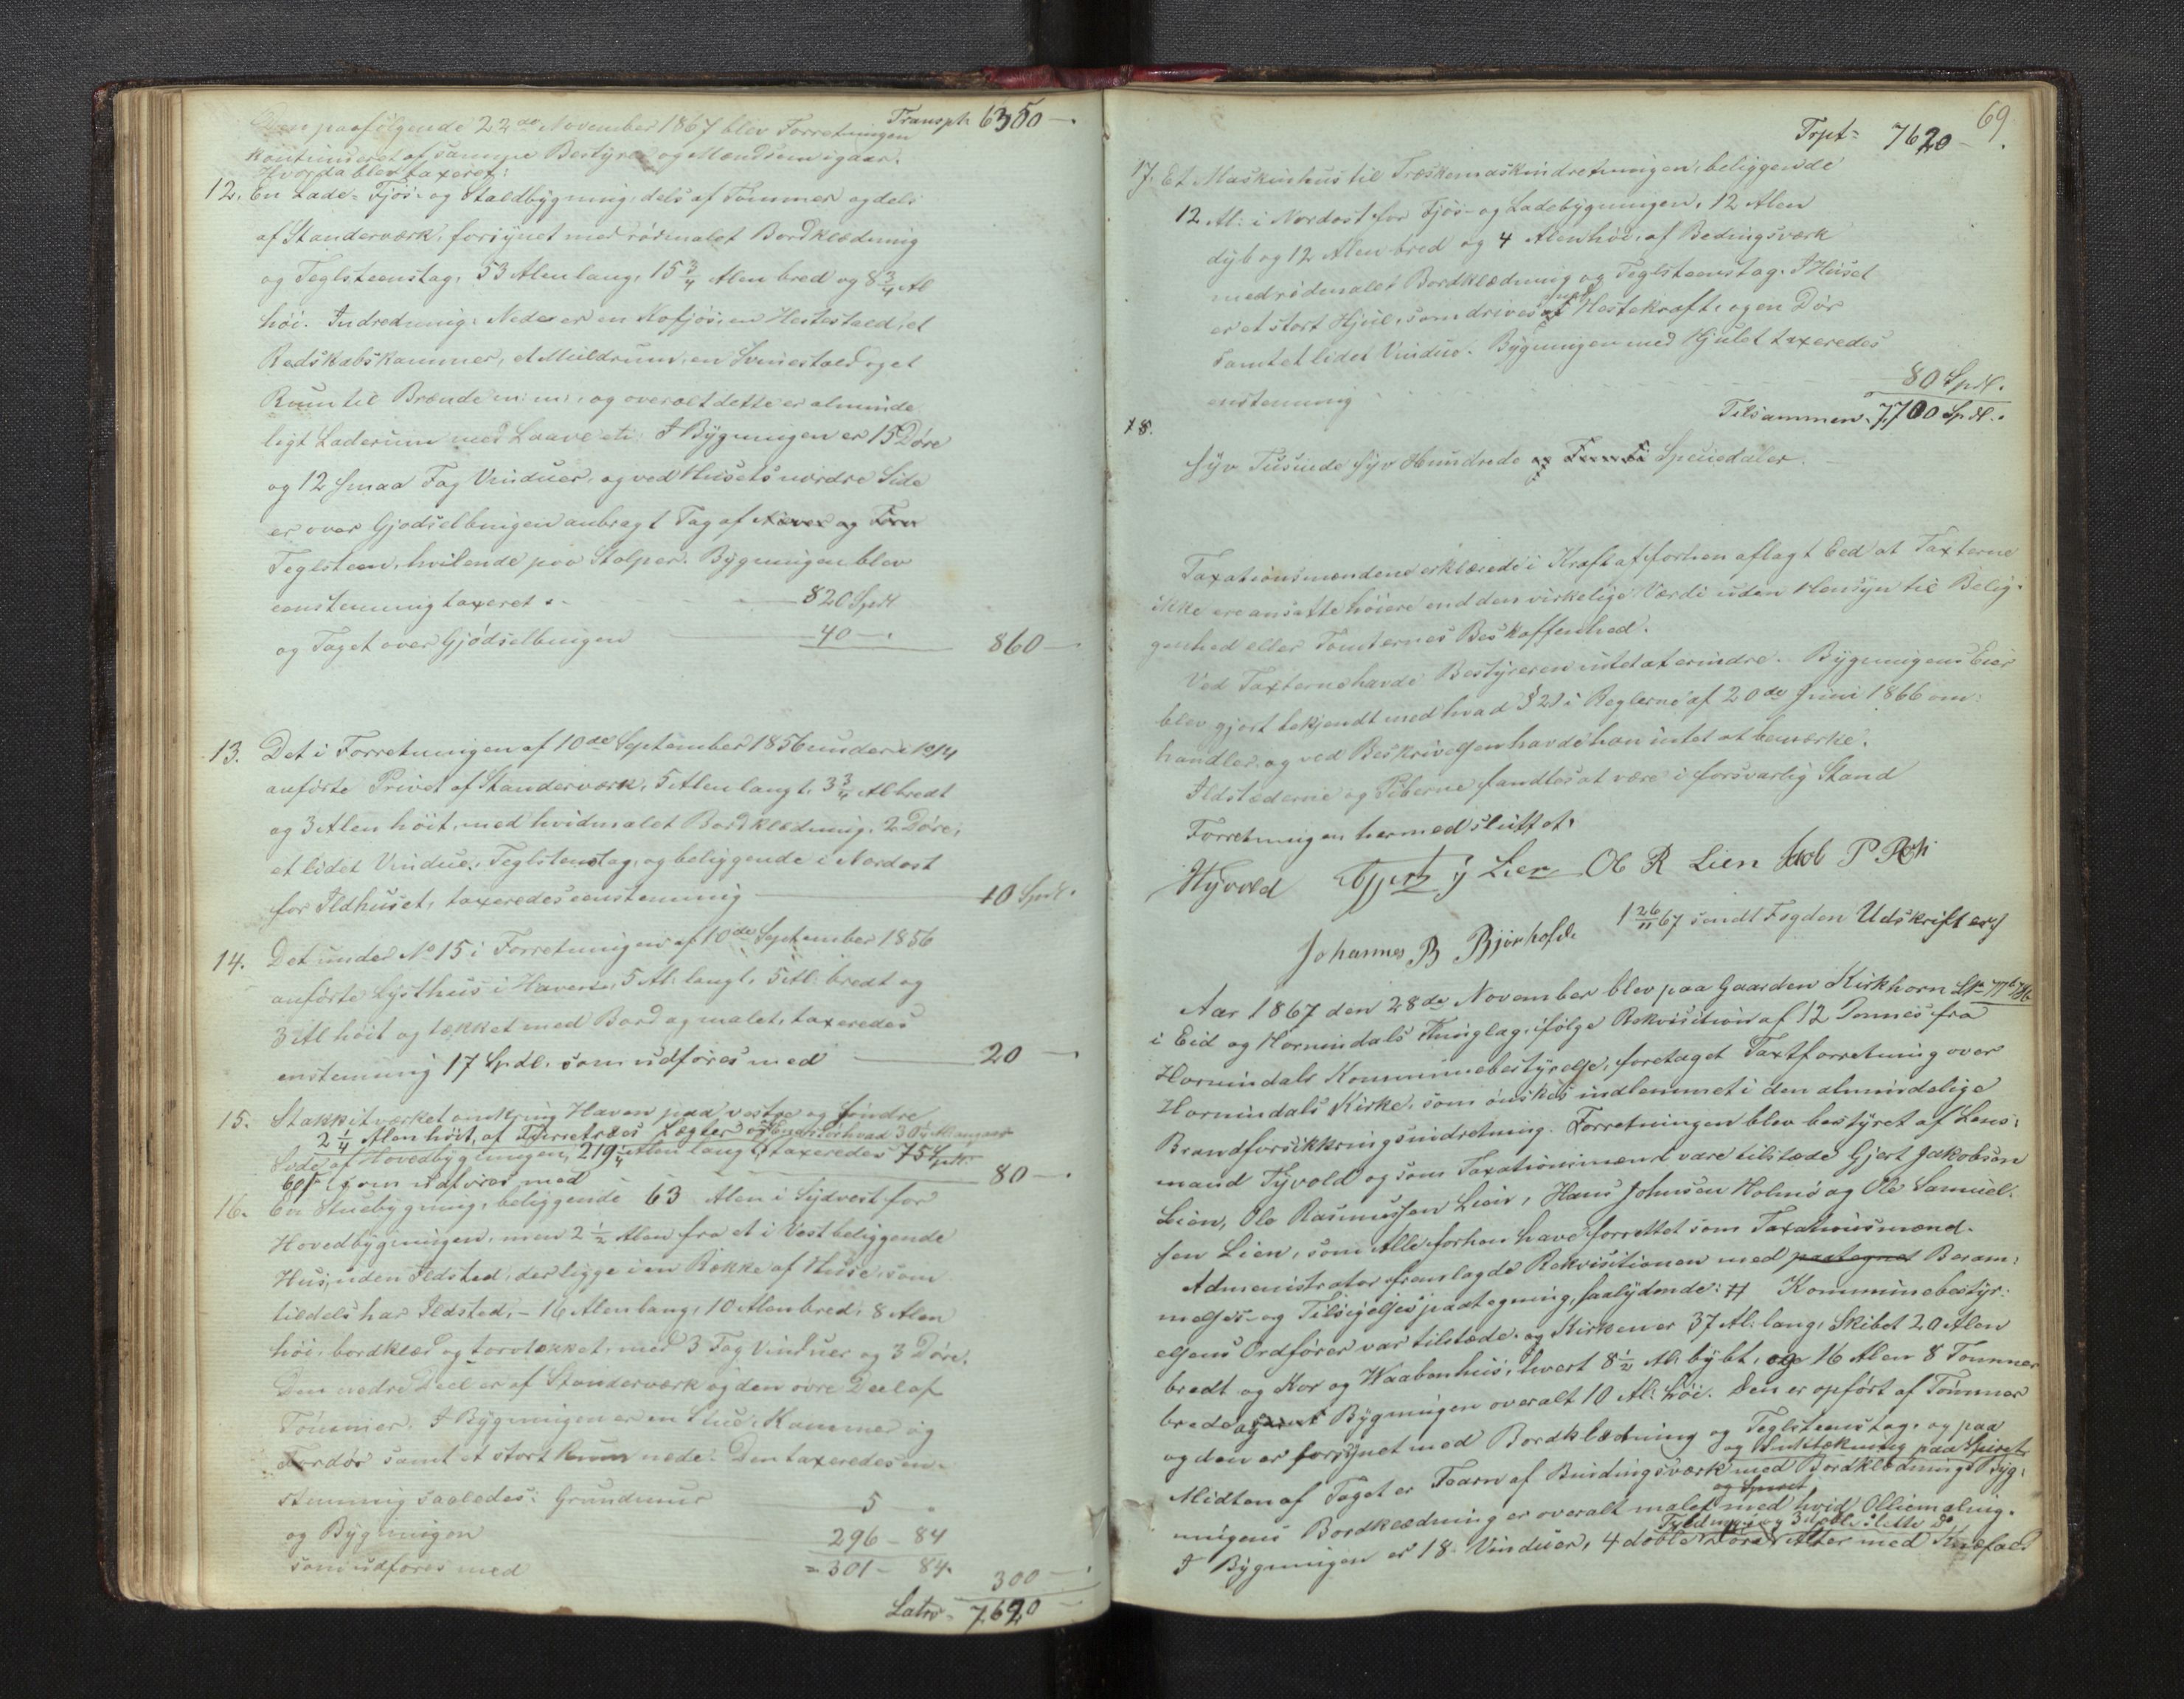 Transpt. 6350 —.
Den paafølgende 22de November 1867 blev Forretningen
kontinueret af samme Bestyrer og Mænd som igaar.
Hvorda blev taxeret:
12. En Lade- Fjøs- og Staldbygning, dels af Tømmer og dels
af Standerværk, forsynet med rødmalet Bordklædning
og Teglsteenstag, 53 Alen lang, 15 3/4 Alen bred og 8 3/4 Al
høi. Indredning: Nede er en Kofjøs, en Hestestald, et
Redskabskammer, et Muldrum, en Svinestald og et
Rum til Brænde m: m:, og overalt dette er alminde
ligt Laderum med Laave etc: I Bygningen er 15 Døre
og 12 smaa Fag Vinduer, og ved Husets nordre Side
er over Gjødselbingen anbragt Tag af Næver og Torv
Teglsteen, hvilende paa Stolper. Bygningen blev
eenstemmig taxeret — 820 Spdl
og Taget over Gjødselbingen — 40 —. 860 —
13. Det i Forretningen af 10de September 1856 under No 14
anførte Privet af Standerværk, 5 Alen langt, 3 3/4 Al bredt
og 3 Alen høit, med hvidmalet Bordklædning, 2 Døre,
et lidet Vindue, Teglstenstag, og beliggende i Nordost
for Ildhuset, taxeredes eenstemmig — 10 Spdl.
14. Det under No 15 i Forretningen af 10de September 1856
anførte Lysthus i Haven, 5 Al: langt, 5 Al: bredt og
3 Al høit og tækket med Bord og malet, taxeredes
enstemmig 17 Spdl. som udføres med — 20 —
15. Stakkitværket omkring Haven paa vestre og søndre
2 1/4 Alen høit, af Fyrretræes Lægter og
Side af Hovedbygningen, 219 1/4 Alen langt, taxeredes 75 Spdl.
som udføres med — 80 —.
16. En Stuebygning, beliggende 63 Alen i Sydvest for
Hovedbygningen, men 2 1/2 Alen fra et i Vest beliggende
Hus, uden Ildsted, der ligge i en Række af Huse, som
tildels har Ildsted, – 16 Alen lang, 10 Alen bred, 8 Alen
høi, bordklæd og torvtækket, med 3 Fag Vinduer og 3 Døre.
Den nedre Deel er af Standerværk og den øvre Deel af
Tømmer. I Bygningen er en Stue, Kammer og
Fordør samt et stort Rum nede. Den taxeredes en-
stemmig saaledes: Grundmur 5 „
og Bygningen 296 – 84
som udføres med = 301 – 84. 300 —.
Latus 7,620 —
69.
Trpt= 7620 –
17. Et Maskinhus til Træskemaskindretningen, beliggende
12 Al: i Nordost for Fjøs- og Ladebygningen, 12 Alen
dyb og 12 Alen bred og 4 Alen høi, af Bindingsværk
med rødmalet Bordklædning og Teglsteenstag. I Huset
er et stort Hjul, som drives af med Hestekraft, og en Dør
samt et lidet Vindue. Bygningen med Hjulet taxeredes
enstemmig 80 Spdl.
Tilsammen 7,700 Spdl.
18.
syv Tusinde syv Hundrede og Femti Speciedaler. —
Taxationsmændene erklærede i Kraft af forhen aflagt Eed at Taxterne
ikke ere ansatte høiere end den virkelige Værdi uden Hensyn til Belig-
genhed eller Tomternes Beskaffenhed.
Ved Taxterne havde Bestyreren intet at erindre. Bygningens Eier
blev gjort bekjendt med hvad § 21 i Reglerne af 20de Juni 1866 om-
handler, og ved Beskrivelsen havde han intet at bemærke.
Ildstederne og Piberne fandtes at være i forsvarlig Stand
Forretningen hermed sluttet.
Hyvold Gjert J Lien Ol R Lien
Johannes B
26/11 67 sendt Fogden Udskrift
Aar 1867 den 28de November blev paa Gaarden Kirkhorn
i Eid og Hornindals Thinglag, ifølge Rekvisition af 12 Dennes fra
Hornindals Kommunebestyrelse, foretaget Taxtforretning over
Hornindals Kirke, som ønskes indlemmet i den almindelige
Brandforsikkringsindretning. Forretningen blev bestyret af Lens-
mand Hyvold og som Taxationsmænd vare tilstæde Gjert Jakobsen
Lien, Ole Rasmussen Lien, Hans Johnsen Holme og Ole Samuel-
sen Lien, som Alle forhen have forrettet som Taxationsmænd.
Administrator fremlagde Rekvisitionen med paategnet Beram-
melses- og Tilsigelses paategning, saalydende: # Kommunebestyr-
elsens Ordfører var tilstæde, og Kirken er 37 Al: lang, Skibet 20 Alen
bredt og Kor og Vaabenhus, hvert 8 1/2 Al: dybt, og 16 Alen 8 Tommer
brede, Bygningen overalt 10 Al: høi. Den er opført af Tømmer
og den er forsynet med Bordklædning og Teglsteenstag, og paa
Midten af Taget er Taarn af Bindingsværk med Bordklædning og Sinktækning paa Spiret. Byg-
ningens Bordklædning og Spiret er overalt malet med hvid Olliemaling.
I Bygningen er 18 Vinduer, 4 doble Døre, Alter med Knæfald